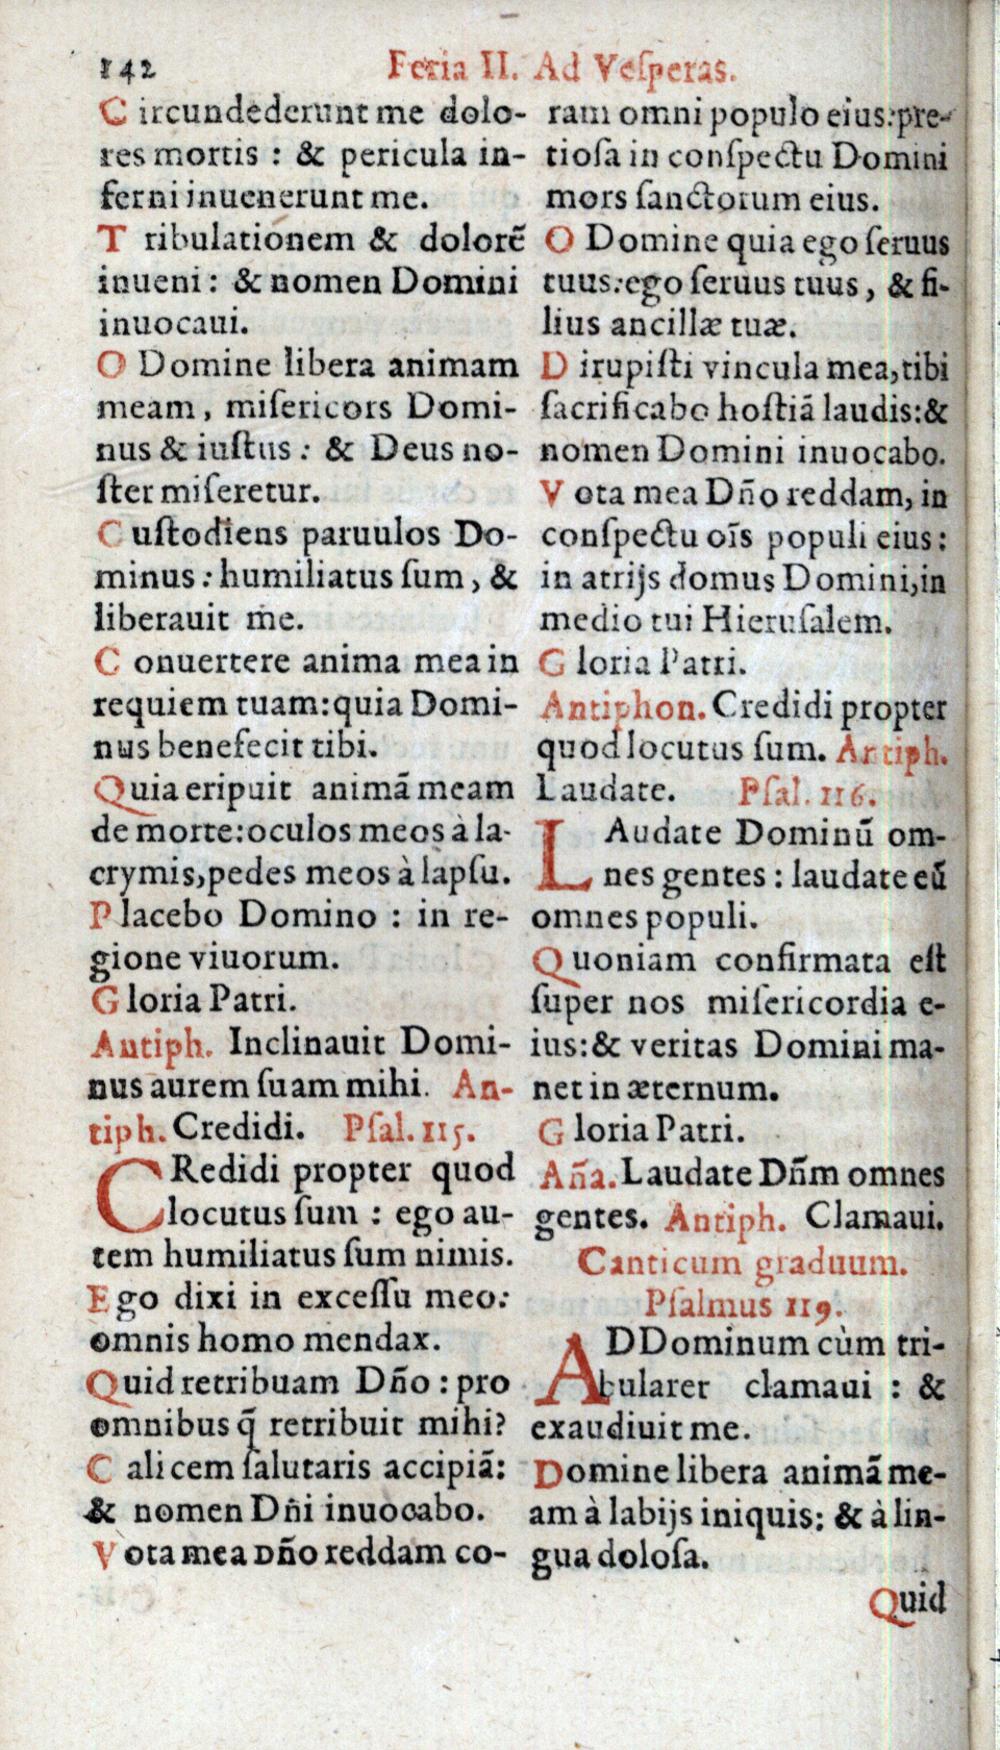 142
Feria II. Ad Veſperas.
Circundederunt me dolo-
res mortis : & pericula in-
ferni inuenerunt me.
Tribulationem & dolorē
inueni : & nomen Domini
inuocaui.
O Domine libera animam
meam, miſericors Domi-
nus & iuſtus : & Deus no-
ſter miſeretur.
Cuſtodiens paruulos Do-
minus : humiliatus ſum, &
liberauit me.
Conuertere anima mea in
requiem tuam: quia Domi-
nus benefecit tibi.
Quia eripuit animā meam
de morte: oculos meos à la-
crymis, pedes meos à lapſu.
Placebo Domino : in re-
gione viuorum.
Gloria Patri.
Antiph. Inclinauit Domi-
nus aurem ſuam mihi. An-
tiph. Credidi. Pſal. 115.
CRedidi propter quod
locutus ſum : ego au-
tem humiliatus ſum nimis.
Ego dixi in exceſſu meo:
omnis homo mendax.
Quid retribuam Dño : pro
omnibus q̄ retribuit mihi?
Calicem ſalutaris accipiā:
& nomen Dñi inuocabo.
Vota mea Dño reddam co-
ram omni populo eius: pre-
tioſa in conſpectu Domini
mors ſanctorum eius.
O Domine quia ego ſeruus
tuus: ego ſeruus tuus, & fi-
lius ancillæ tuæ.
Dirupiſti vincula mea, tibi
ſacrificabo hoſtiā laudis: &
nomen Domini inuocabo.
Vota mea Dño reddam, in
conſpectu oīs populi eius:
in atrijs domus Domini, in
medio tui Hieruſalem.
Gloria Patri.
Antiphon. Credidi propter
quod locutus ſum. Antiph.
Laudate. Pſal. 116.
LAudate Dominū om-
nes gentes : laudate eū
omnes populi.
Quoniam confirmata eſt
ſuper nos miſericordia e-
ius: & veritas Domini ma-
net in æternum.
Gloria Patri.
Aña. Laudate Dñm omnes
gentes. Antiph. Clamaui.
Canticum graduum.
Pſalmus 119.
ADDominum cùm tri-
bularer clamaui : &
exaudiuit me.
Domine libera animā me-
am à labijs iniquis: & à lin-
gua doloſa.
Quid